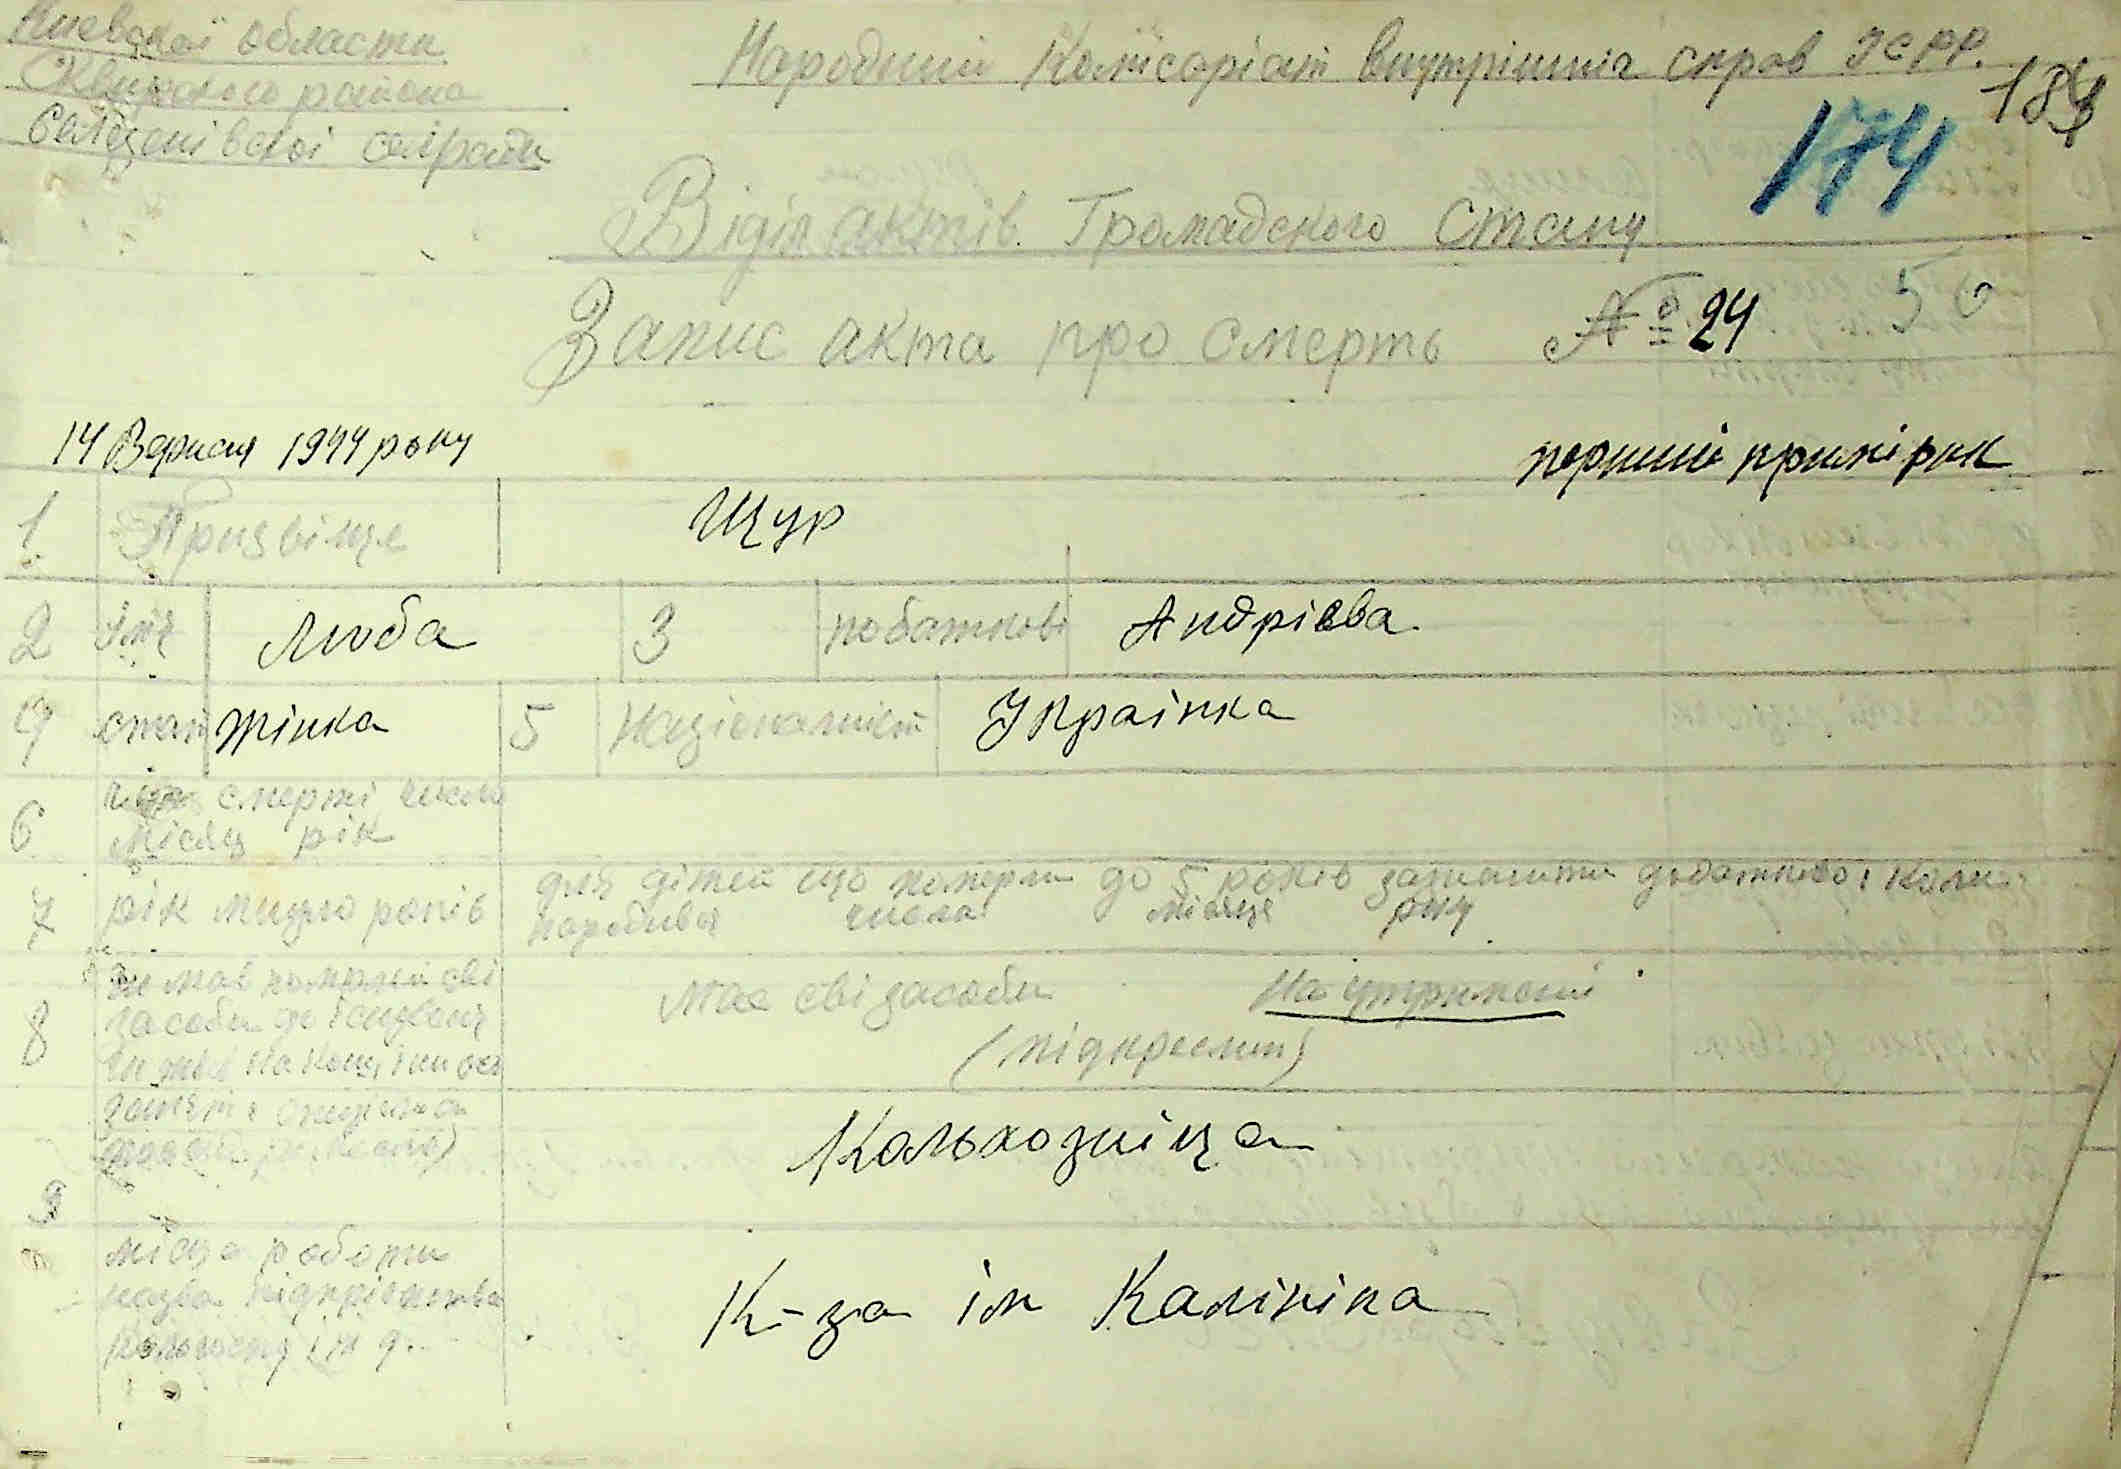 Киевскоі области
Сквирского района
Селезенівскоі сельради
Народний Комісаріат внутрішніх справ УСРР.
184
174
Віділ актів Громадского Стану
Запис акта про смерть № 24
50
14 Вересня 1944 року
перший примірик
1 Призвіще Щур
2 Імя Люба 3 побатькові Андрієва
4 стать жінка 5 Націоналність Українка
6 час смерті число
місяц рік
7 рік минуло років
для дітей що померли до 5 років зазначити додатково: коли
народився числа місяця року
8
засоби до існування
має сві засоби на утриманні
(підкреслит)
9
Кольхозніца
місце работи
назва підприємства
кольгоспу і т д.
К-за ім Калініна